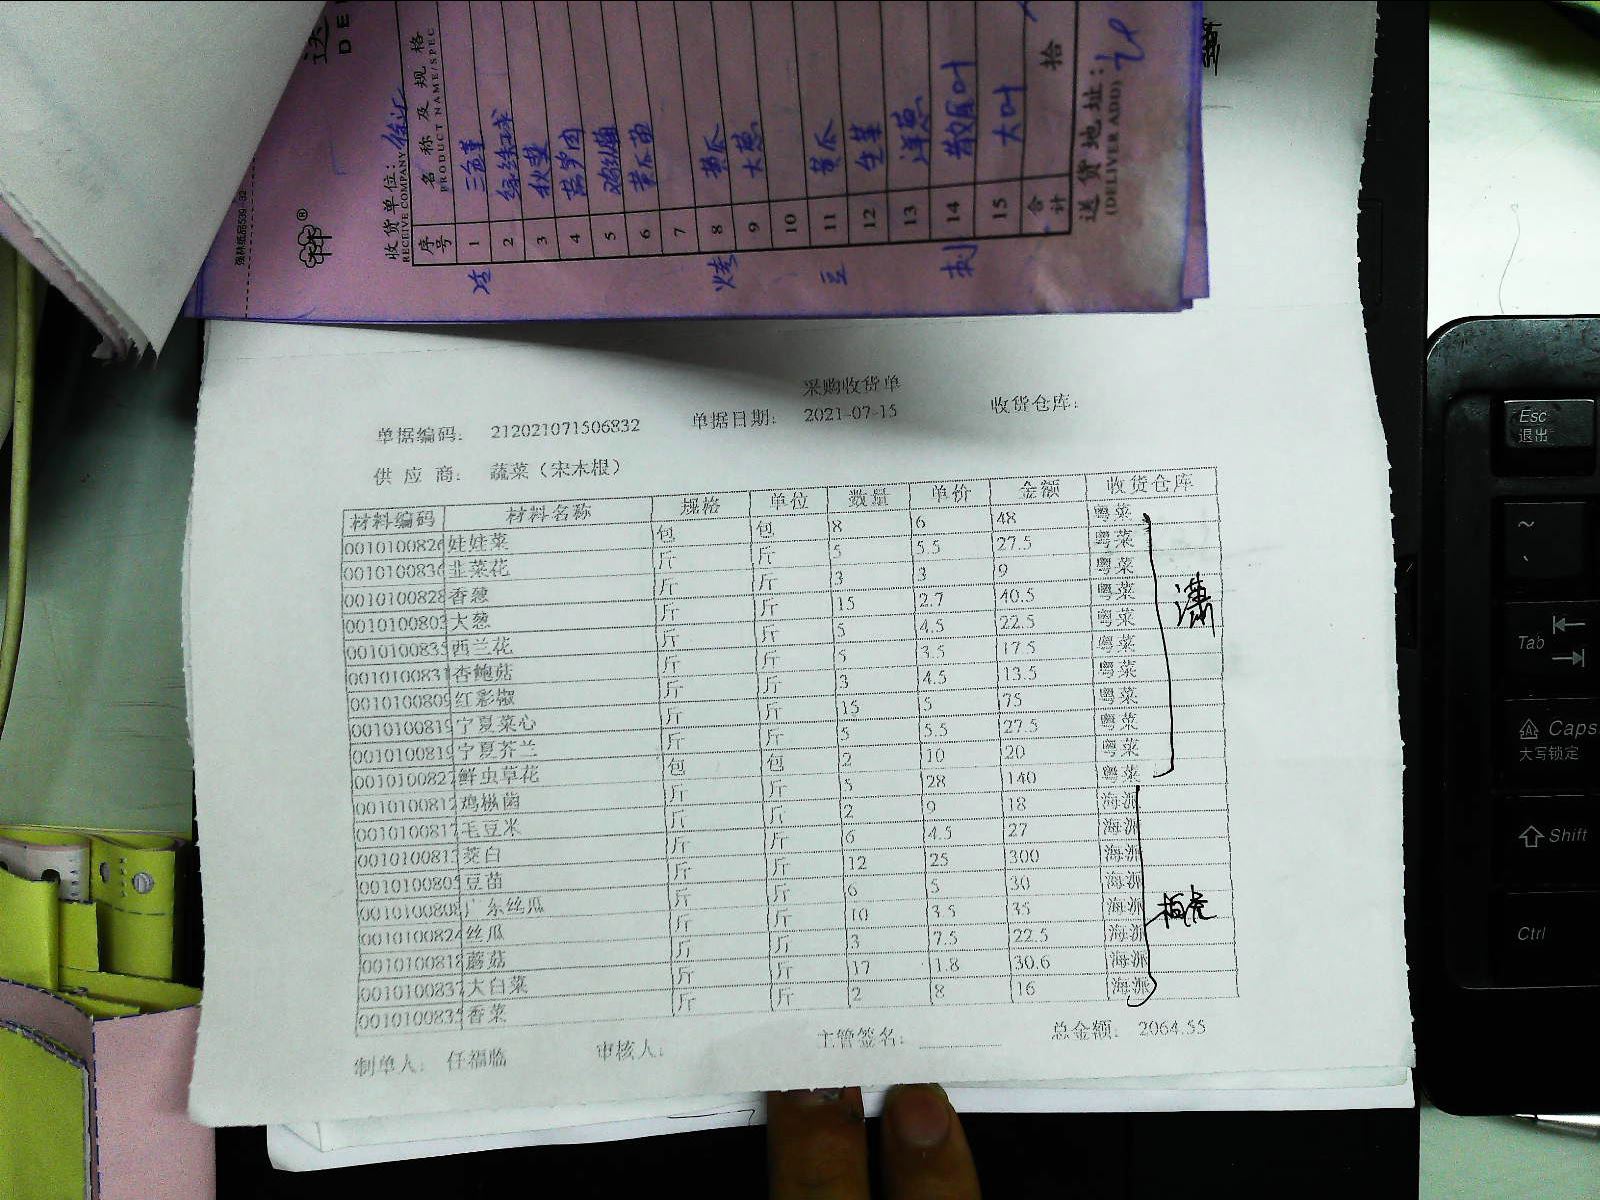 采购收货单
单据编码： 212021071506832 单据日期： 2021-07-15 收货仓库：
供 应 商： 蔬菜（宋木根）
材料编码 材料名称 规格 单位 数量 单价 金额 收货仓库
0010100826 娃娃菜 包 包 8 6 48 粤菜
0010100836 韭菜花 斤 斤 5 5.5 27.5 粤菜
0010100828 香葱 斤 斤 3 3 9 粤菜
0010100803 大葱 斤 斤 15 2.7 40.5 粤菜
0010100835 西兰花 斤 斤 5 4.5 22.5 粤菜
0010100831 杏鲍菇 斤 斤 5 3.5 17.5 粤菜
0010100809 红彩椒 斤 斤 3 4.5 13.5 粤菜
0010100819 宁夏菜心 斤 斤 15 5 75 粤菜
0010100819 宁夏芥兰 斤 斤 5 5.5 27.5 粤菜
0010100827 鲜虫草花 包 包 2 10 20 粤菜
0010100812 鸡枞菌 斤 斤 5 28 140 粤菜
0010100817 毛豆米 斤 斤 2 9 18 海派
0010100813 茭白 斤 斤 6 4.5 27 海派
0010100805 豆苗 斤 斤 12 25 300 海派
0010100808 广东丝瓜 斤 斤 6 5 30 海派
0010100824 丝瓜 斤 斤 10 3.5 35 海派
0010100818 蘑菇 斤 斤 3 7.5 22.5 海派
0010100837 大白菜 斤 斤 17 1.8 30.6 海派
0010100835 香菜 斤 斤 2 8 16 海派
制单人： 任福临 审核人： 主管签名： 总金额： 2064.55
送
DE
强林纸品539-32
®
收货单位：
RECEIVE COMPANY
序号 名称及规格
PRODUCT NAME/SPEC
1
2
3
4
5
6 黄瓜
7
8 黄瓜
9 大葱
10
11 黄瓜
12 生菜
13 洋葱
14
15 大叶
合计 拾
送货地址：
(DELIVER ADD)
烤
豆
刺
Esc
退出
~
Tab
Caps
大写锁定
Shift
Ctrl